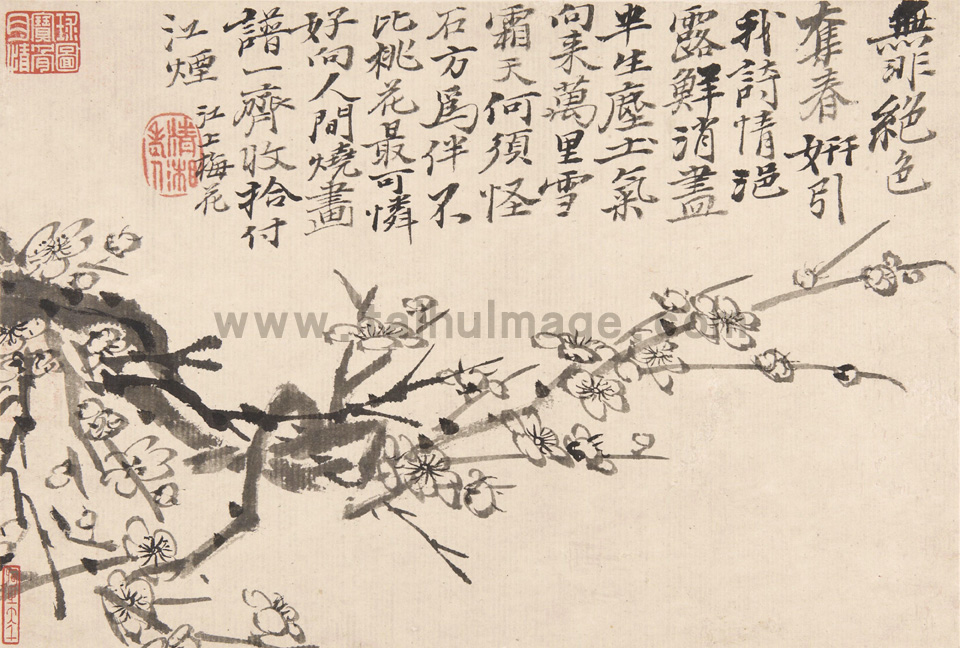 無非絕色
奪春妍引
我詩情浥
露鮮消盡
半生塵土氣
向来萬里雪
霜天何須怪
石方為伴不
比桃花最可憐
好向人間燒畫
譜一齊收拾付
江煙
江上梅花
清湘老人
www.taihuImage.com